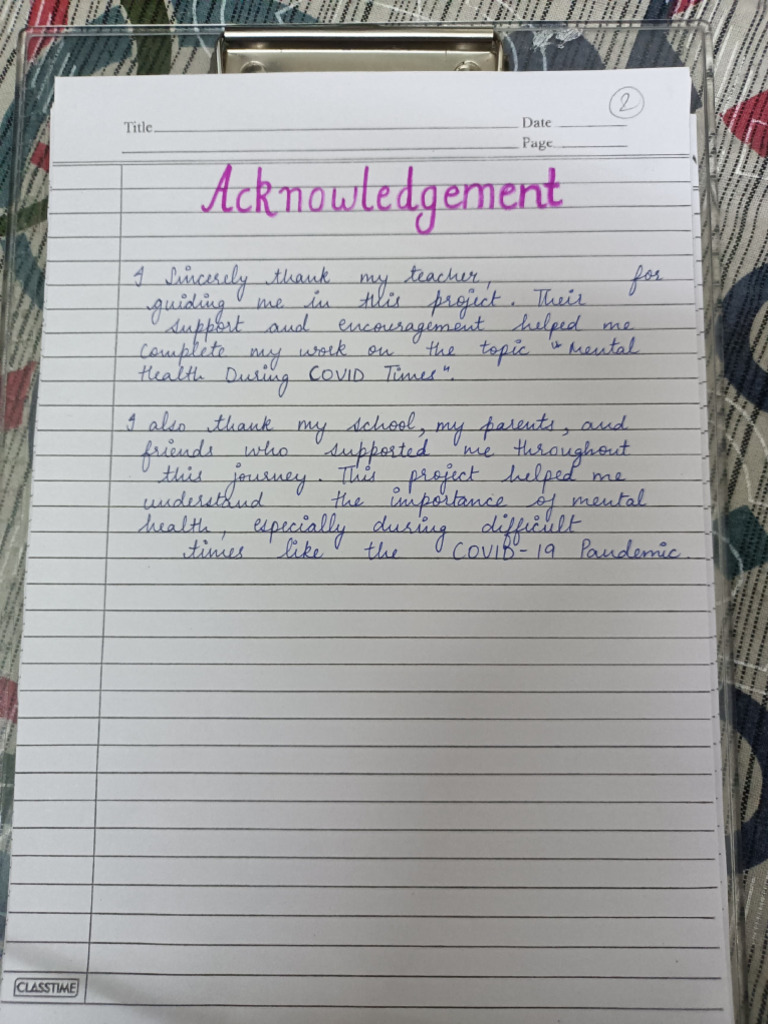 2
Title
Date
Page
Acknowledgement
I Sincerely thank my teacher, for
guiding me in this project. Their
support and encouragement helped me
complete my work on the topic "Mental
Health During COVID Times".
I also thank my school, my parents, and
friends who supported me throughout
this journey. This project helped me
understand the importance of mental
health, especially during difficult
times like the COVID-19 Pandemic.
CLASSTIME